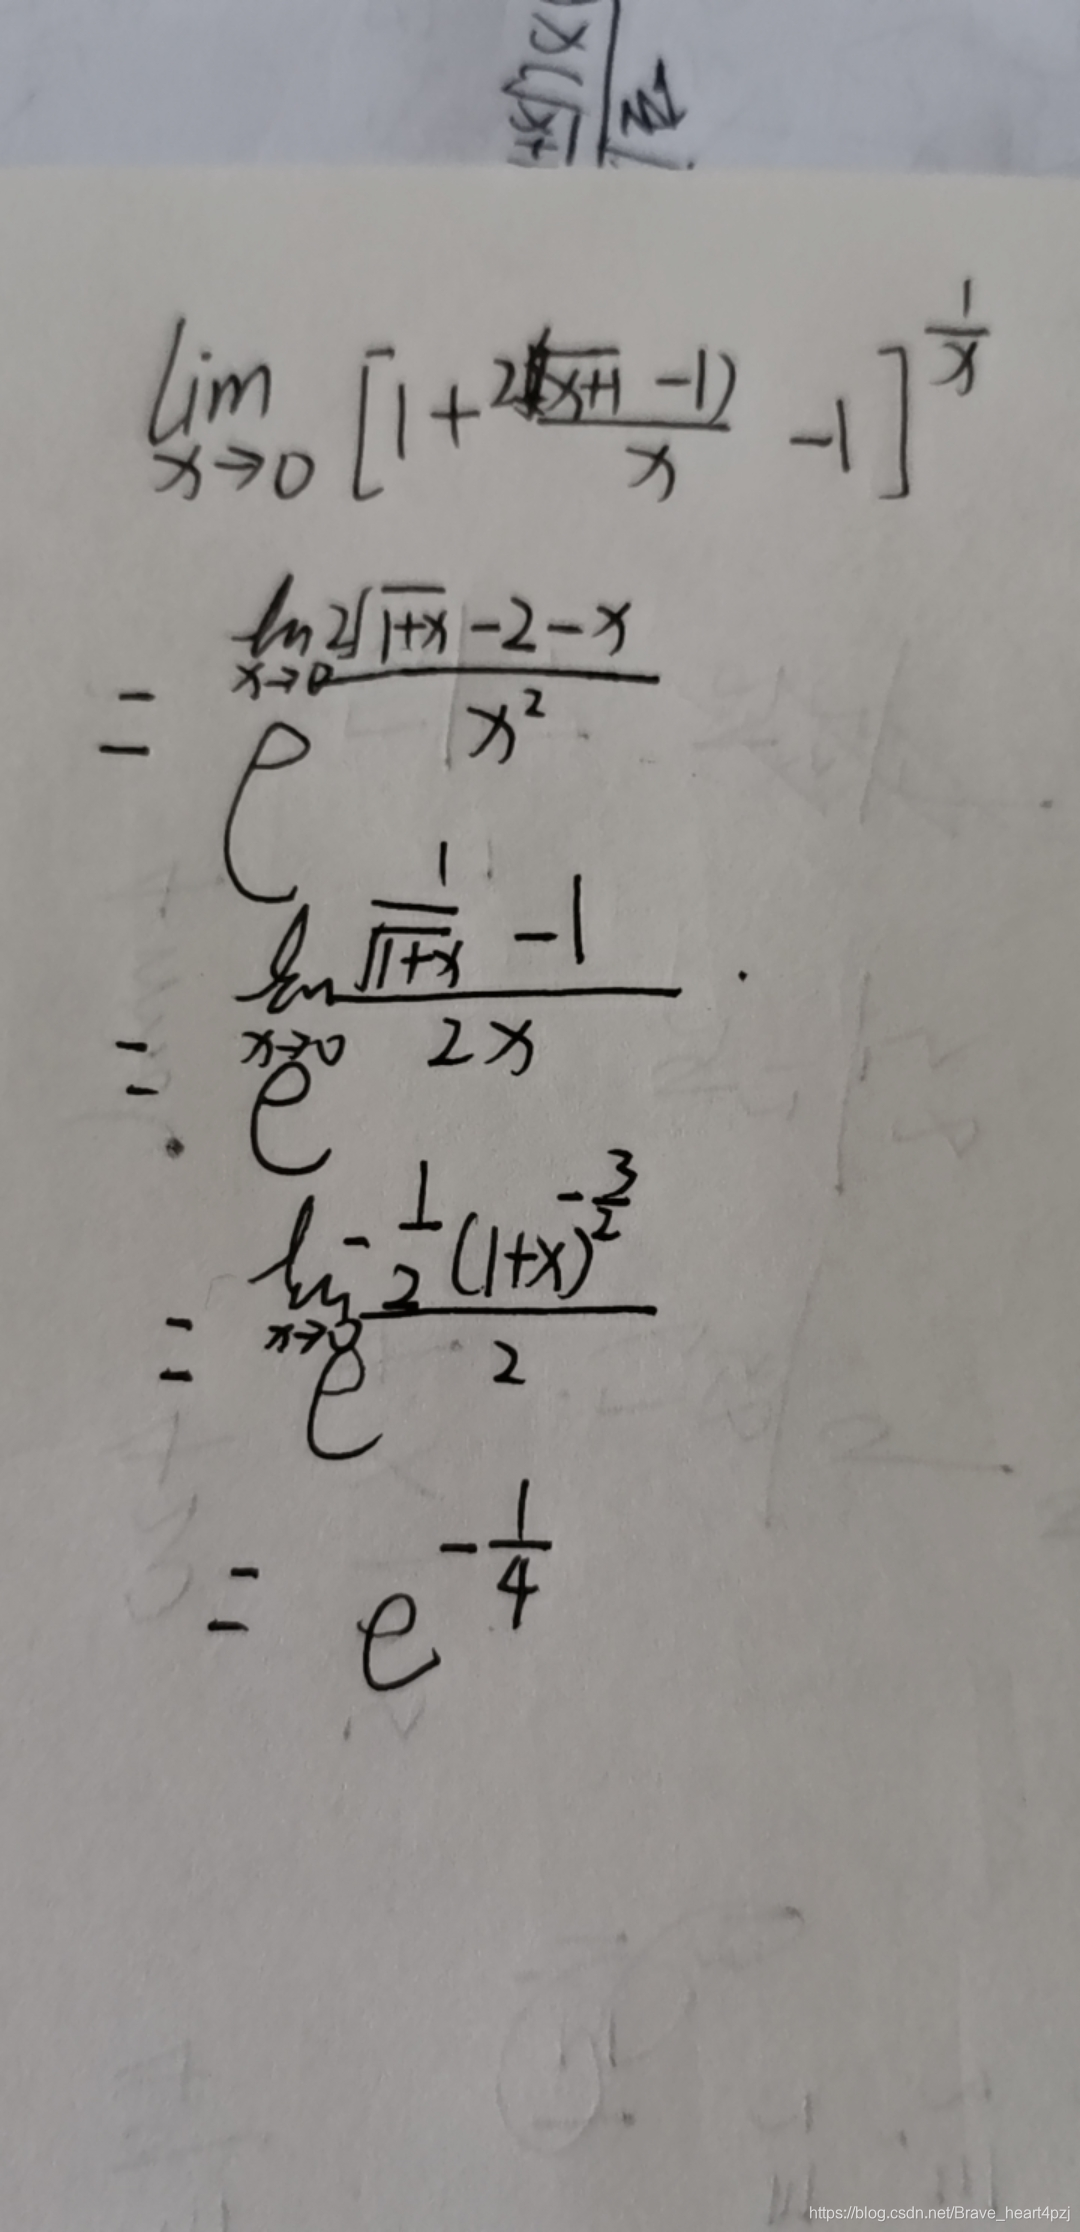 lim x→0 [1 + 2(√(x+1) - 1)/x - 1]^(1/x)
= e^(lim x→0 (2√(1+x) - 2 - x)/x²)
= e^(lim x→0 (1/√(1+x) - 1)/(2x))
= e^(lim x→0 (-1/2 (1+x)^(-3/2))/2)
= e^(-1/4)
https://blog.csdn.net/Brave_heart4pzj